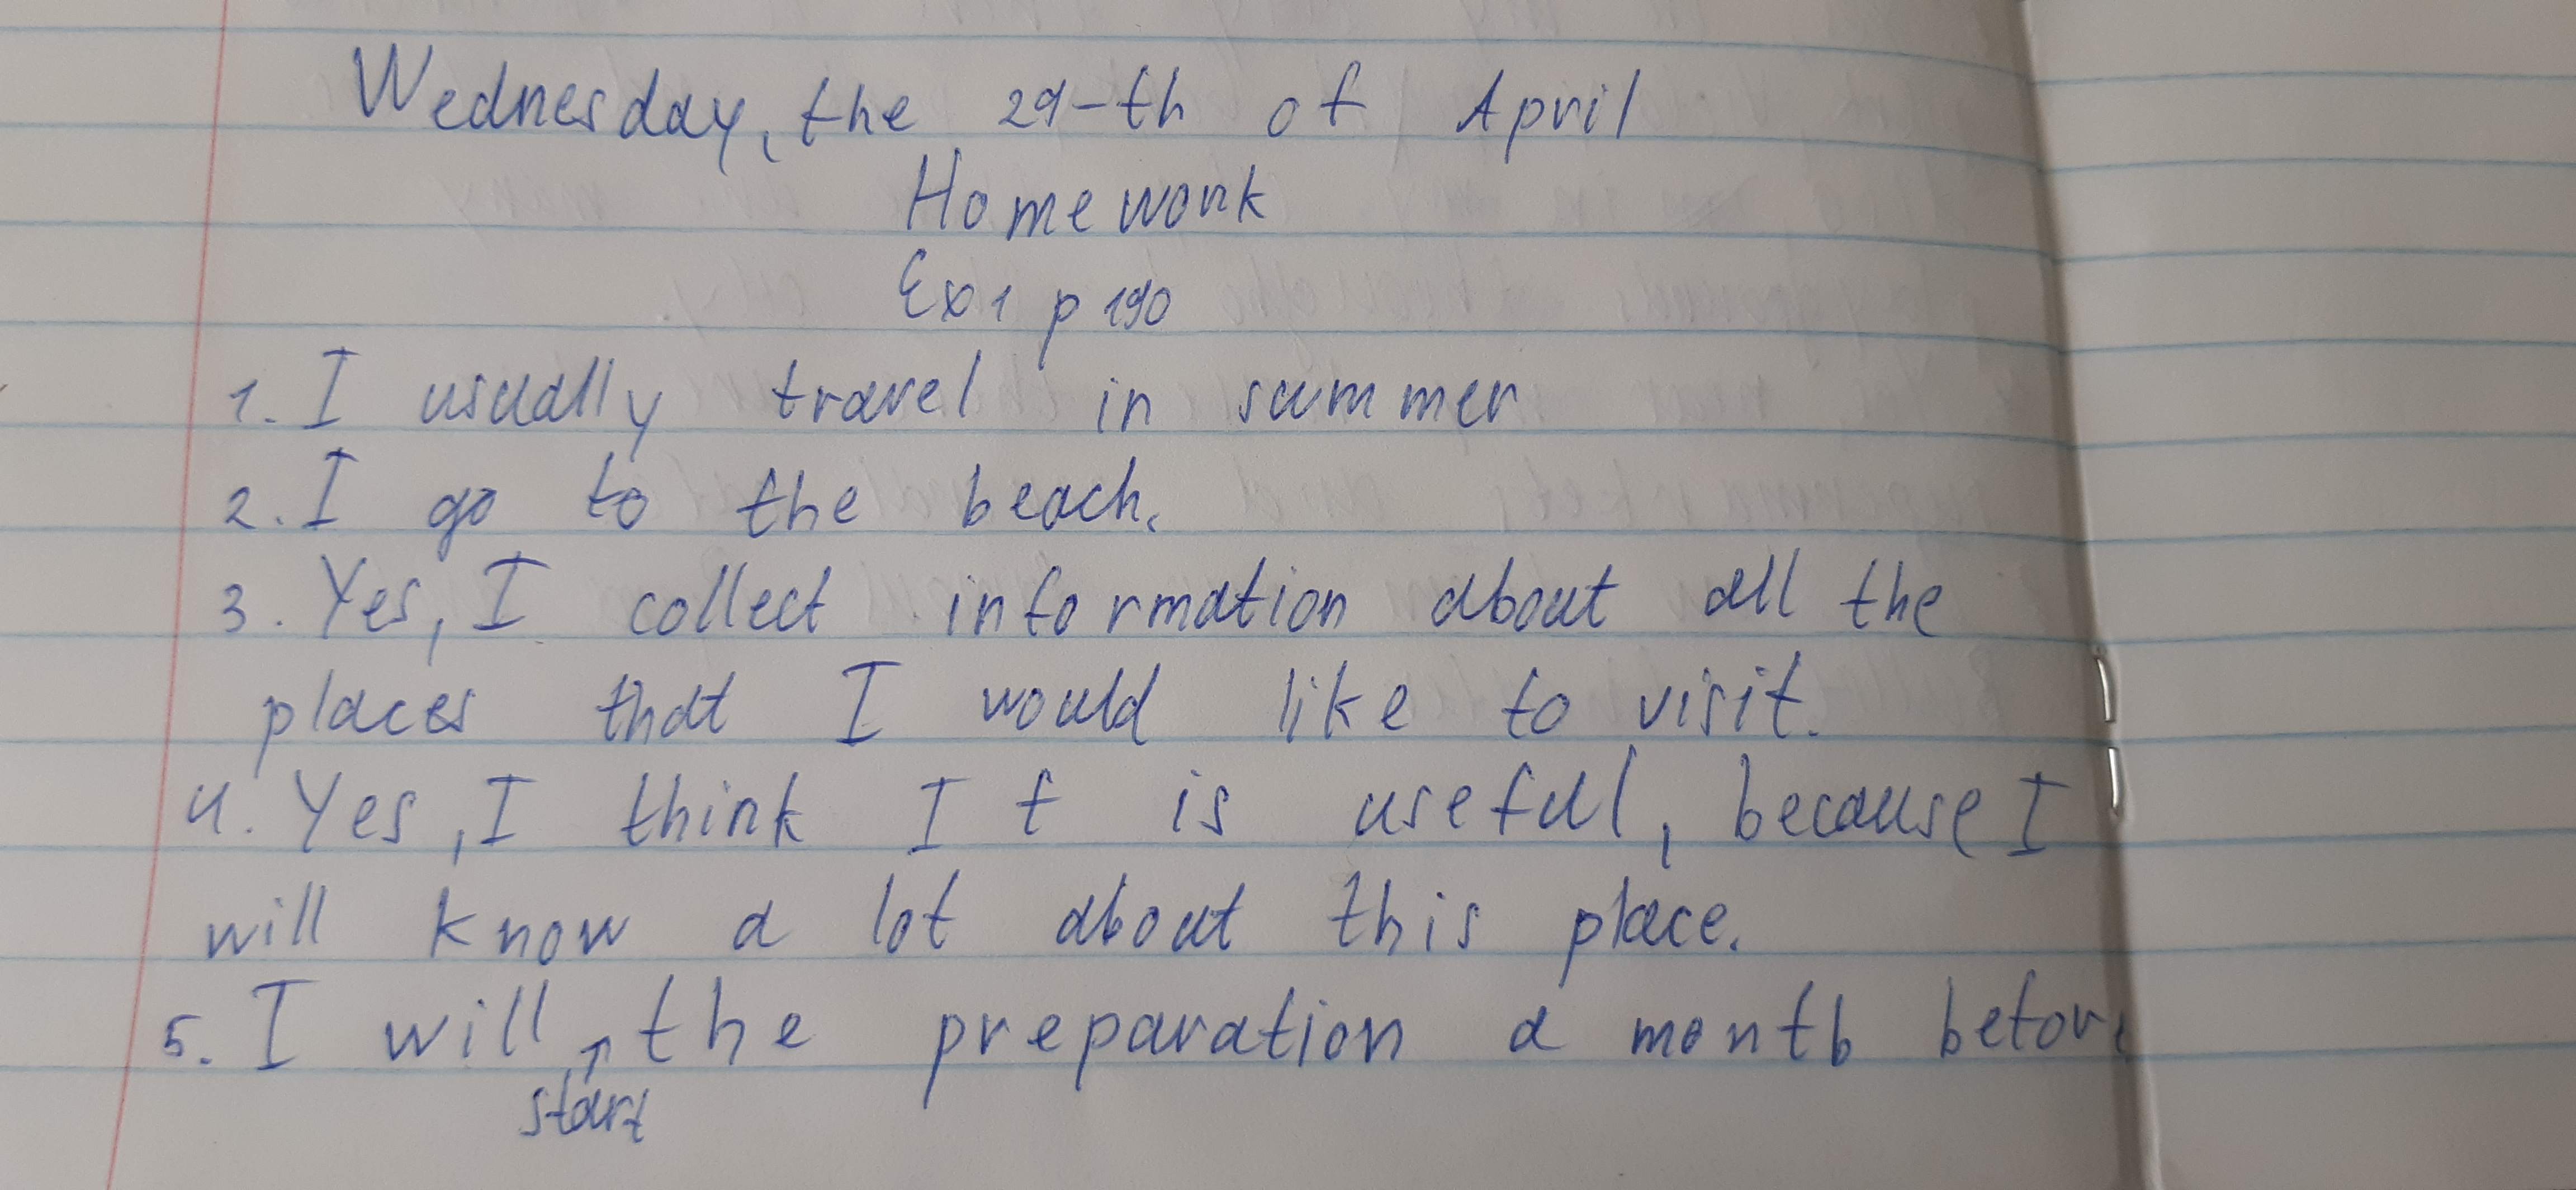 Wednesday, the 29-th of April
Homework
Ex 1 p 190
1. I usually travel in summer
2. I go to the beach.
3. Yes, I collect information about all the
places that I would like to visit.
4. Yes, I think It is useful, because I
will know a lot about this place.
5. I will start the preparation a month before